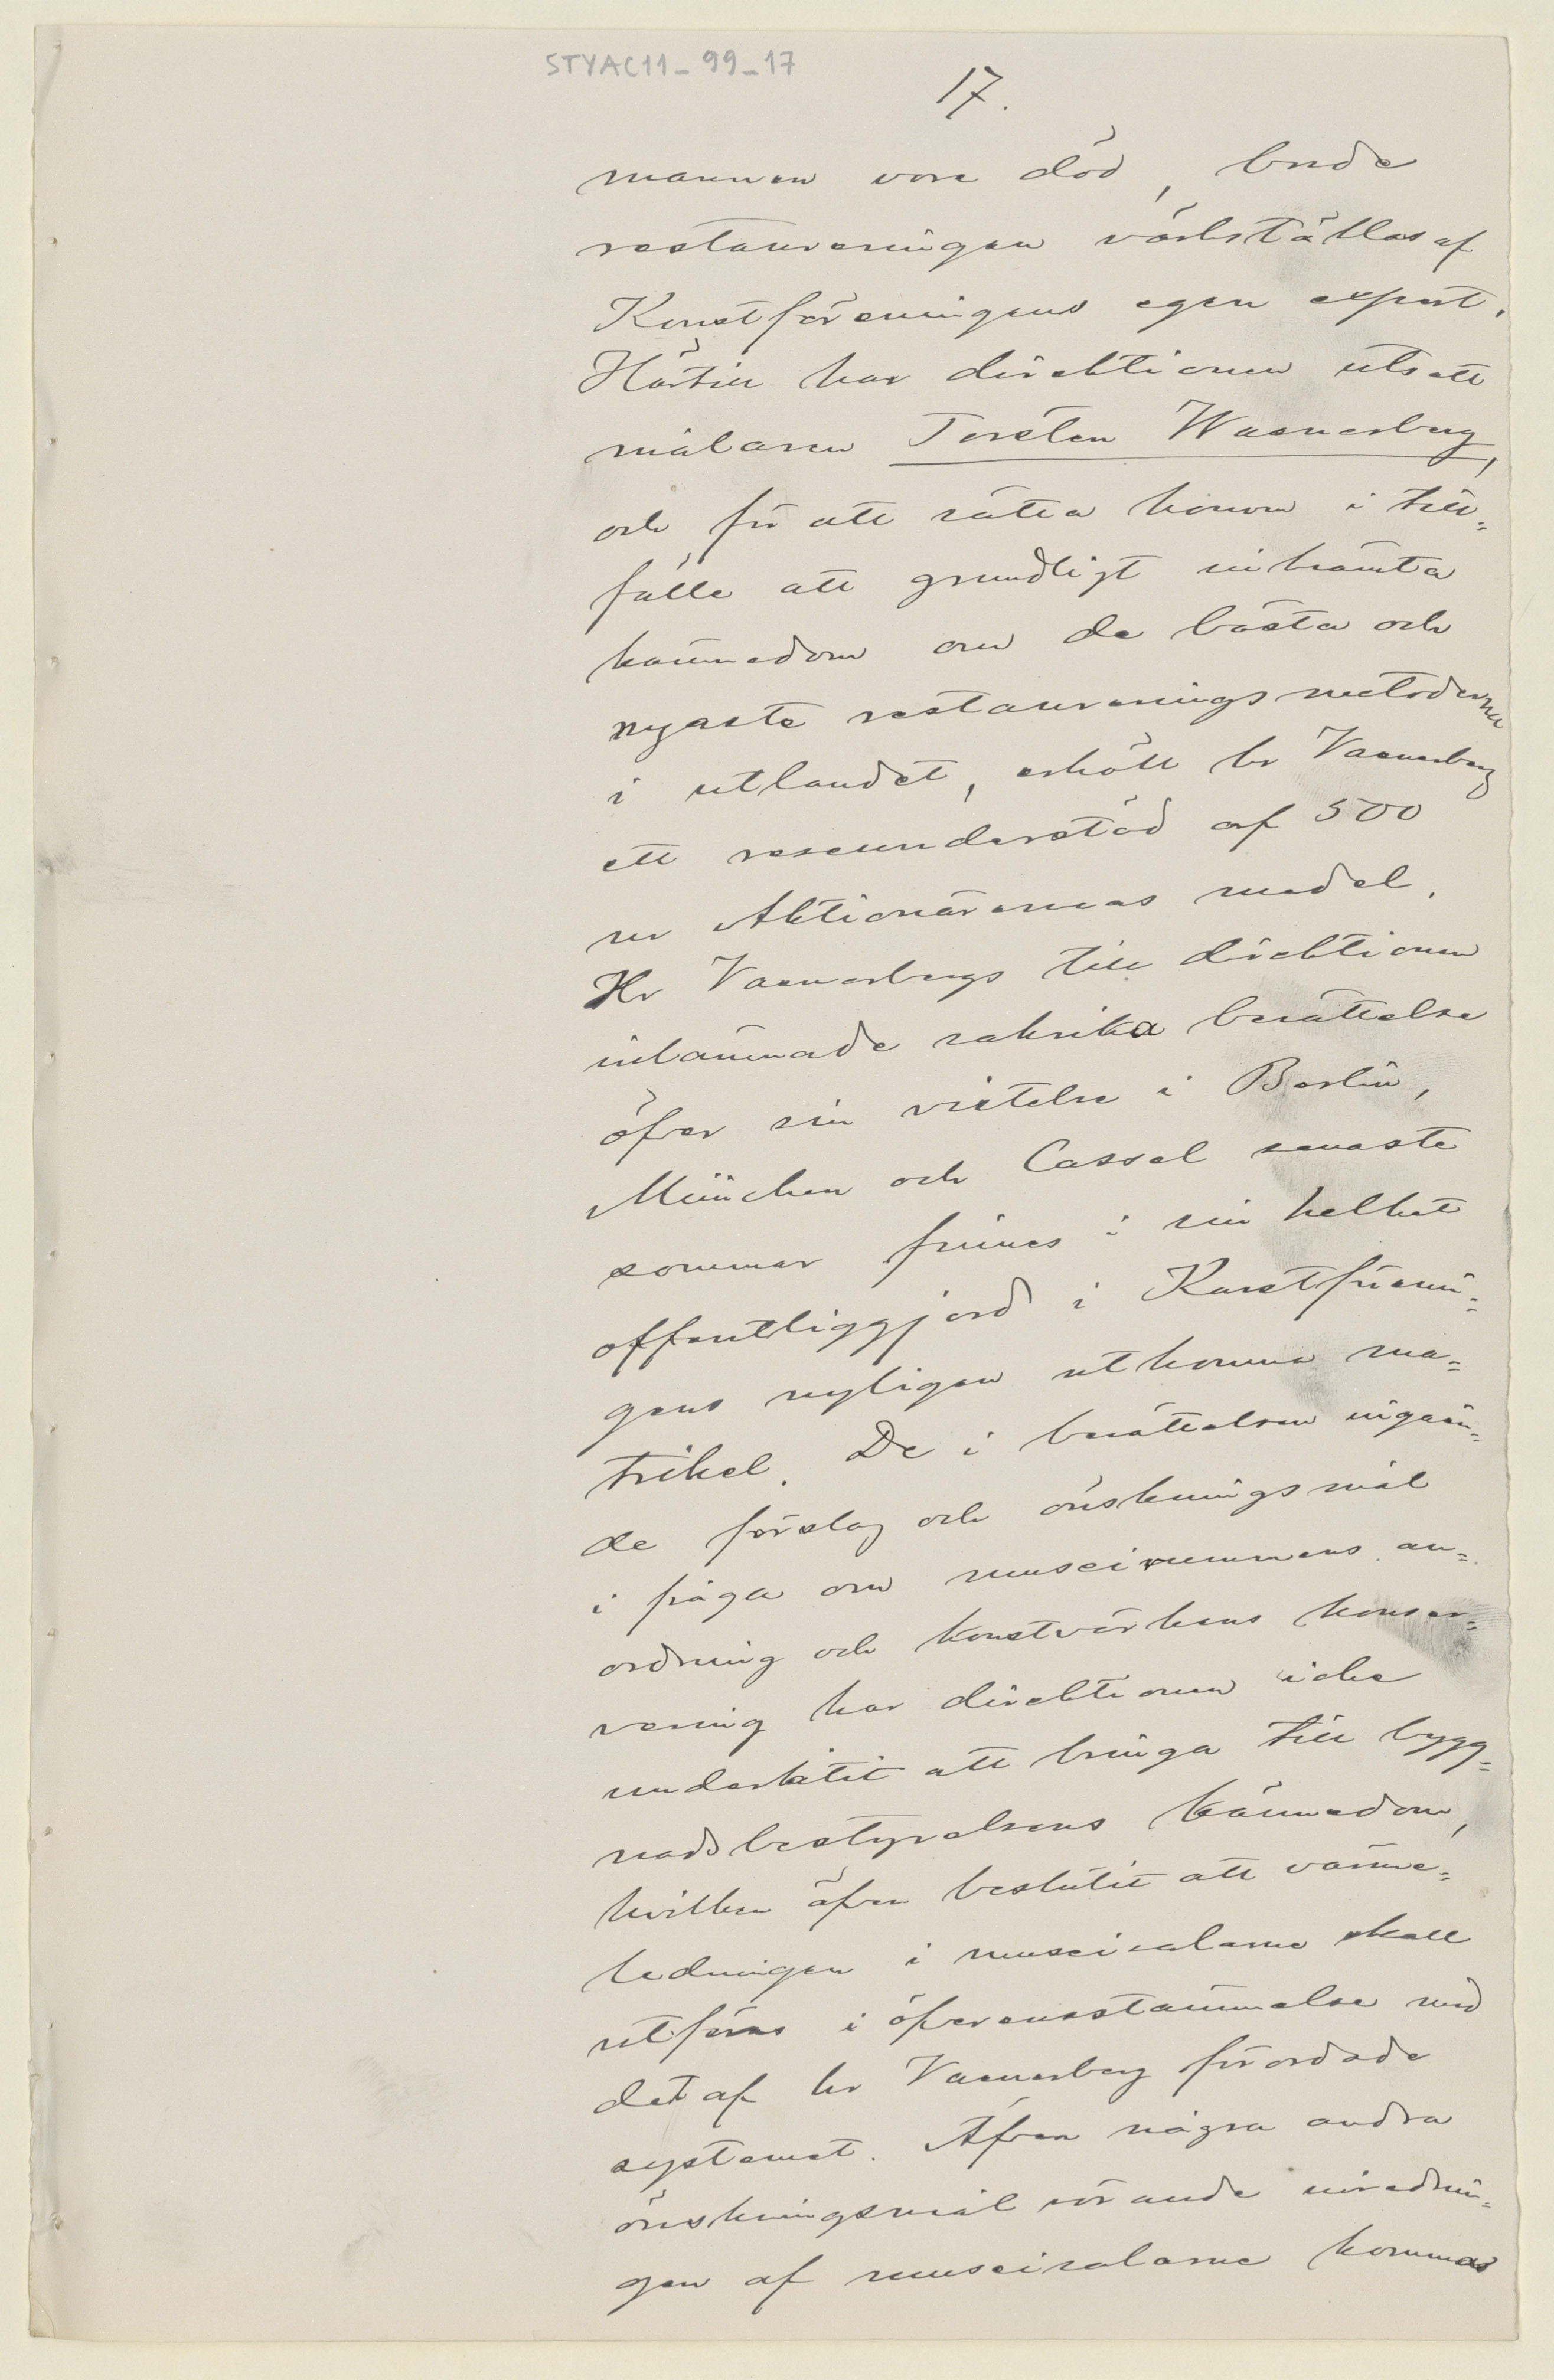 STYAC11_99_17
17.
mannen vore död, bnde
restaureringen värkställas af
Konstföreningens egen expert.
Härtill har direktionen utsett
målaren Torsten Wasnerberg,
och för att sätta honom i till=
fälle att grundligt inhämta
kännedom om de bästa och
nyaste restaureringsmetoderna
i utlandet, erhöll hr Vaenerberg
ett reseunderstöd af 500
ur Aktionärernas medel.
Hr Vaenerbergs till direktionen
inlämnade sakrika berättelse
öfver sin vistelse i Berlin,
München och Cassel senaste
sommar finnes i sin helhet
offentliggjord i Konstförenin=
gens nyligen utkomna ma=
trikel. De i berättelsen ingåen=
de förslag och önskningsmål
i fråga om museirummens an=
ordning och konstvärkens konser=
vering har direktionen icke
underlåtit att bringa till bygg=
nadsbestyrelsens kännedom,
hvilken äfven beslutit att värme=
ledningen i museisalarne skall
utföras i öfverensstämmelse med
det af hr Vaenerberg förordade
systemet. Äfven några andra
önskningsmål rörande inrednin=
gen af museisalarne kommas